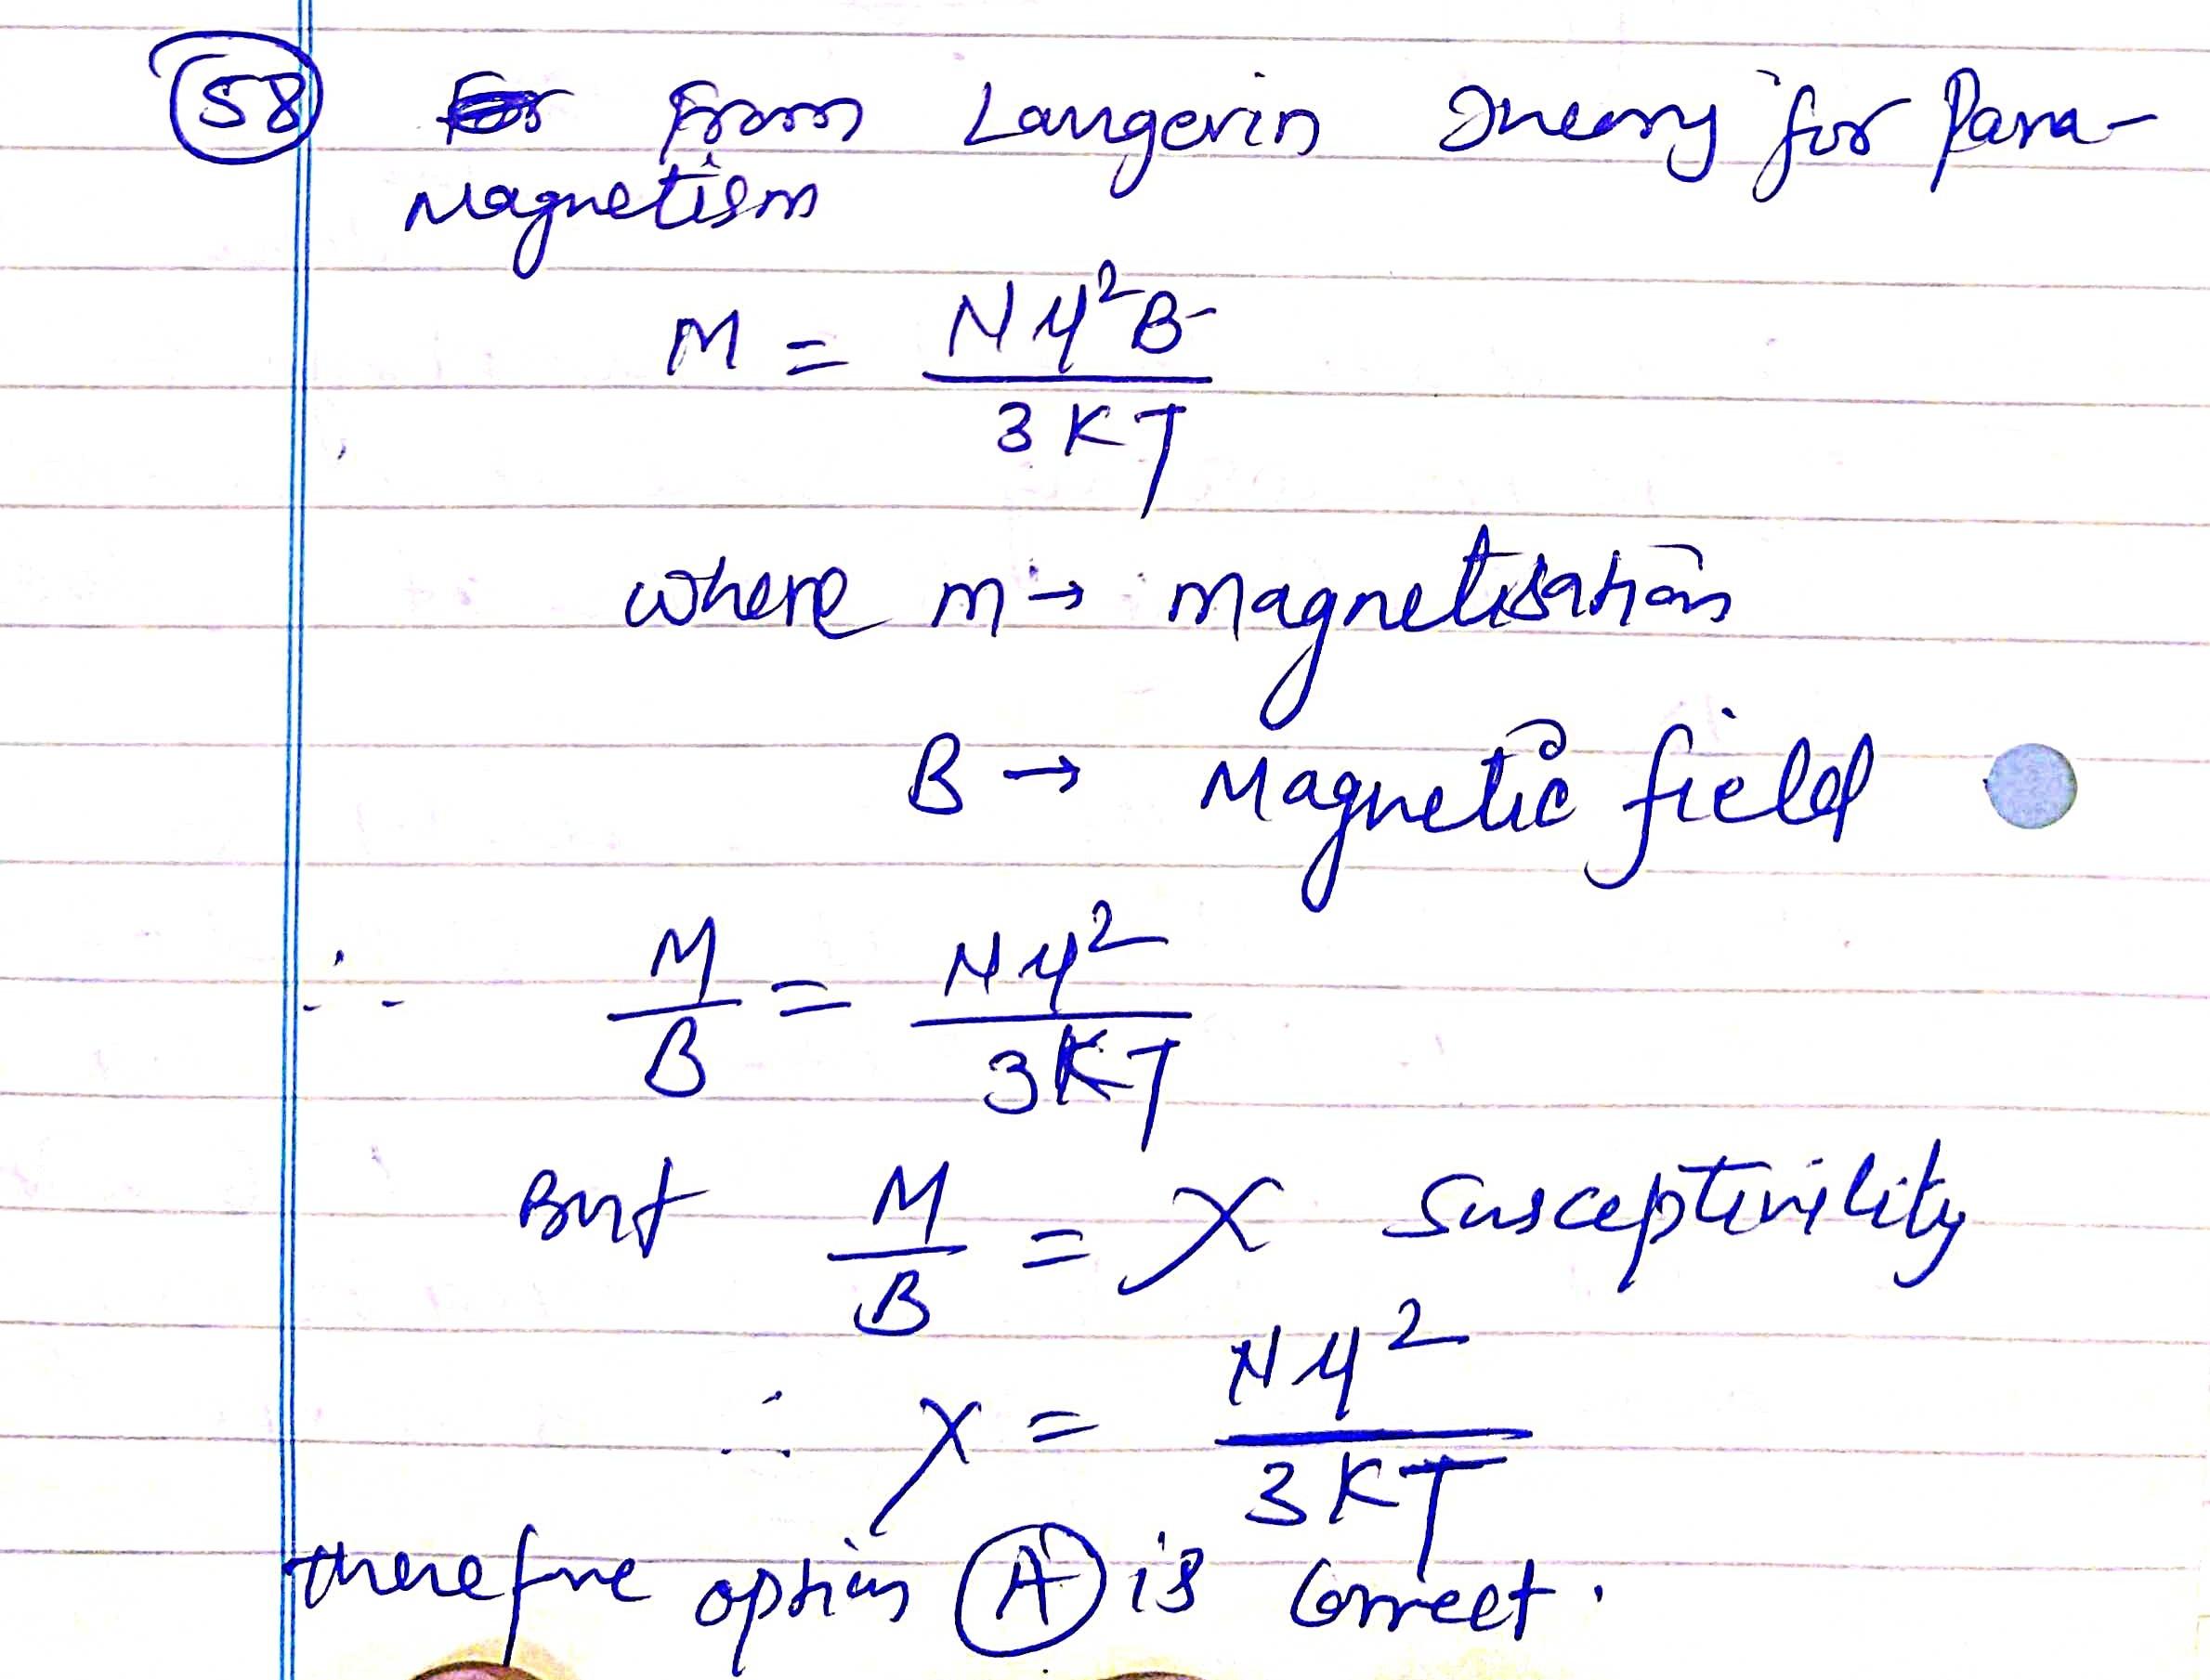 58 For From Langevin Theory for Para-
Magnetism
M = Nμ²B / 3KT
where m → magnetisation
B → Magnetic field
∴ M/B = Nμ² / 3KT
But M/B = χ Susceptivility
∴ χ = Nμ² / 3KT
therefore option (A) is Correct.